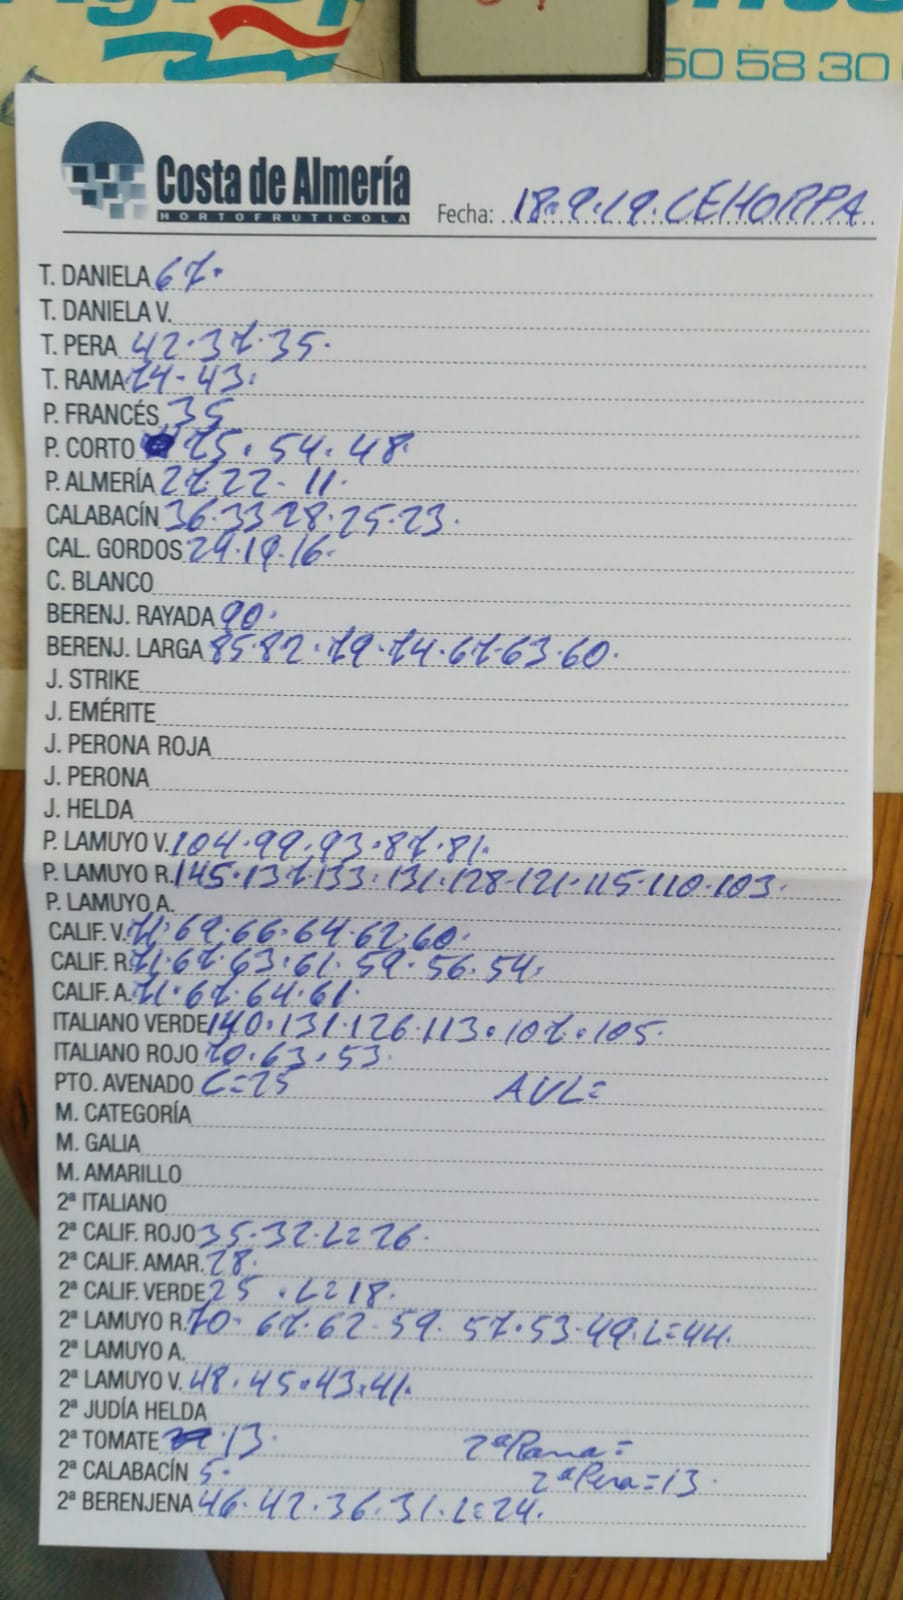 50 58 30
Costa de Almería
HORTOFRUTICOLA
Fecha: 18.9.19. CEHORPA
T. DANIELA 67.
T. DANIELA V.
T. PERA 42.37.35.
T. RAMA 74-43.
P. FRANCÉS 35
P. CORTO 75.54.48.
P. ALMERÍA 27.22-11.
CALABACÍN 36.33 28.25.23.
CAL. GORDOS 24.19.16.
C. BLANCO
BERENJ. RAYADA 90.
BERENJ. LARGA 85.82.79.74.67.63.60.
J. STRIKE
J. EMÉRITE
J. PERONA ROJA
J. PERONA
J. HELDA
P. LAMUYO V. 104.99.93.87.81.
P. LAMUYO R. 145.137.133.131.128-121-115-110.103.
P. LAMUYO A.
CALIF. V. 71.69.66.64.62.60.
CALIF. R. 71.67.63.61.59.56.54.
CALIF. A. 71.67.64.61.
ITALIANO VERDE 140.131.126.113.107.105.
ITALIANO ROJO 70.63.53.
PTO. AVENADO C=25 AVL=
M. CATEGORÍA
M. GALIA
M. AMARILLO
2ª ITALIANO
2ª CALIF. ROJO 35.32.L=26.
2ª CALIF. AMAR. 28.
2ª CALIF. VERDE 25.L=18.
2ª LAMUYO R. 70-67.62-59.57.53-49.L=44.
2ª LAMUYO A.
2ª LAMUYO V. 48.45.43.41.
2ª JUDÍA HELDA
2ª TOMATE 13. 2ª Rama=
2ª CALABACÍN 5. 2ª Pera=13.
2ª BERENJENA 46.42.36.31.L=24.